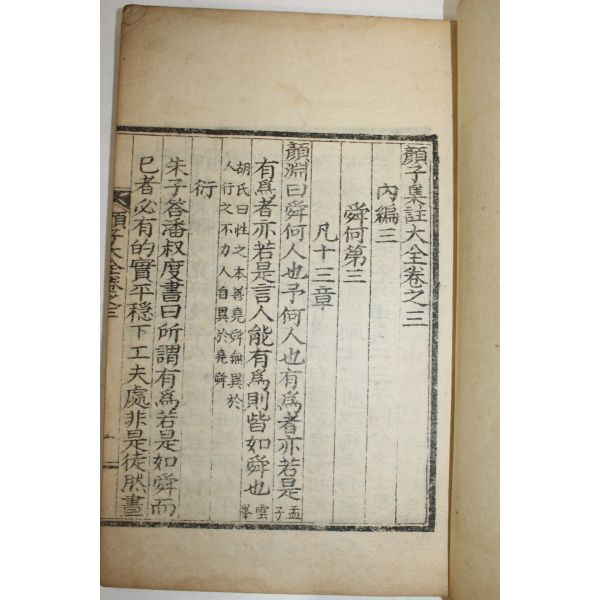 顏子集註大全卷之三
內編三
舜何第三
凡十三章
顏淵曰舜何人也予何人也有爲者亦若是孟子
有爲者亦若是言人能有爲則皆如舜也雲峯
胡氏曰性之本善堯舜無異於
人行之不力人自異於堯舜
衍
朱子答潘叔度書曰所謂有爲若是如舜而
已者必有的實平穩下工夫處非是徒然晝
顏子大全卷之三
一